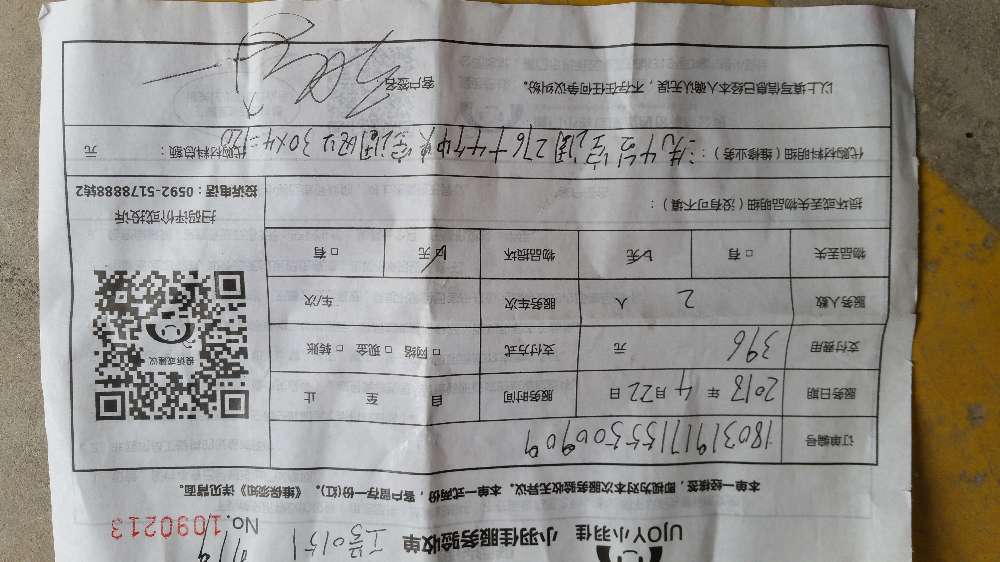 UJOY小羽佳 小羽佳服务验收单
No. 1090213
本单一经接签，即视为对本次服务验收无异议。本单一式两份，客户留存一份(红)。《维保须知》详见背面。
订单编号 18031917155500909
服务日期 2018 年 4 月 22 日 服务时间 自 至 止
支付费用 396 元 支付方式 □ 网络 □ 现金 □ 转账
服务人数 2 人 服务车次 车/次
物品丢失 □ 有 ☑ 无 物品损坏 ☑ 无 □ 有
投诉或建议
扫码评价或投诉
投诉电话：0592-5178888转2
损坏或丢失物品明细（没有可不填）：
代购材料明细（维修业务）：洗4台空调276 30×4=120 代购材料总额： 元
以上填写信息已经本人确认无误，不存在任何争议纠纷。 客户签名